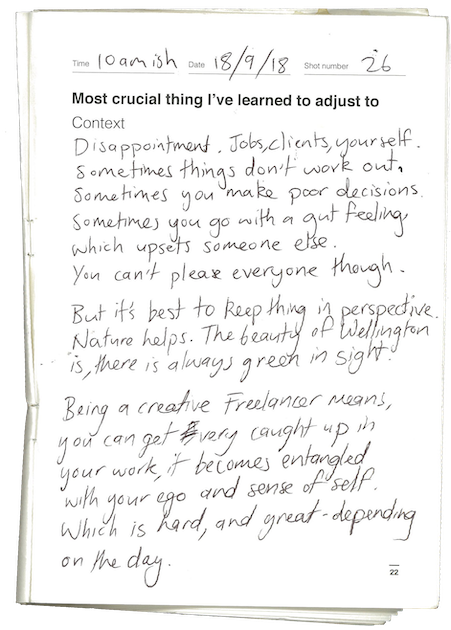 Time 10amish Date 18/9/18 Shot number 26
Most crucial thing I've learned to adjust to
Context
Disappointment. Jobs, clients, yourself.
Sometimes things don't work out.
Sometimes you make poor decisions.
Sometimes you go with a gut feeling,
which upsets someone else.
You can't please everyone though.
But it's best to keep thing in perspective.
Nature helps. The beauty of Wellington
is, there is always green in sight.
Being a creative Freelancer means,
you can get very caught up in
your work, it becomes entangled
with your ego and sense of self.
Which is hard, and great - depending
on the day.
22